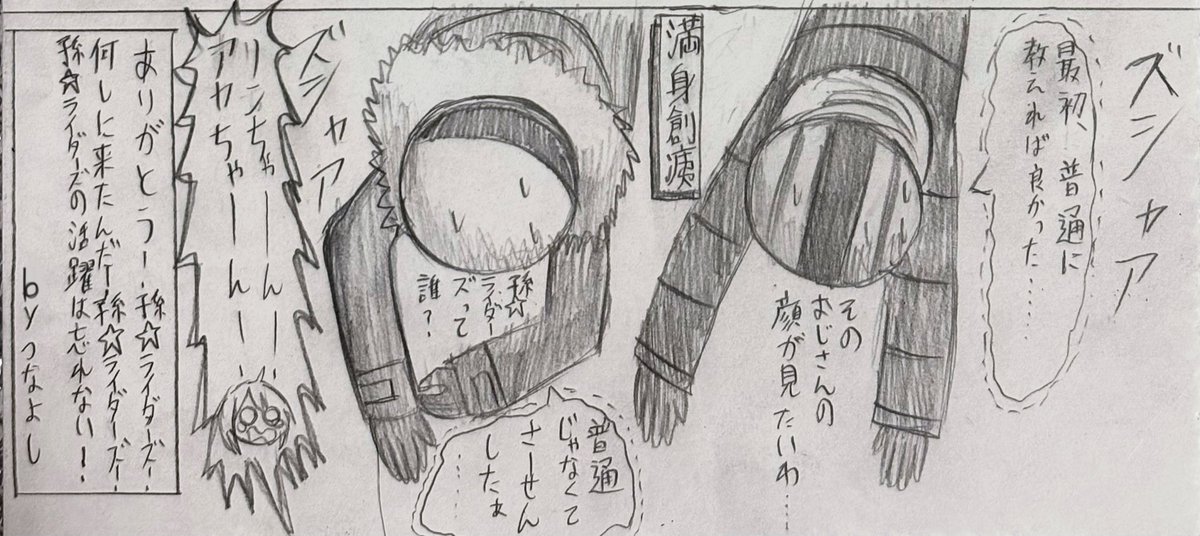 ズシャァ
最初、普通に
教えれば良かった……
その
おじさんの
顔が見たいわ…
満身創痍
普通
じゃなくて
さーせん
したぁ
……
孫☆
ライダー
ズって
誰?
ズシャァ
リンちゃーんー
アカちゃーんー
ありがとうー孫☆ライダーズ!
何しに来たんだー孫☆ライダーズ!
孫☆ライダーズの活躍は忘れない!
byつなよし